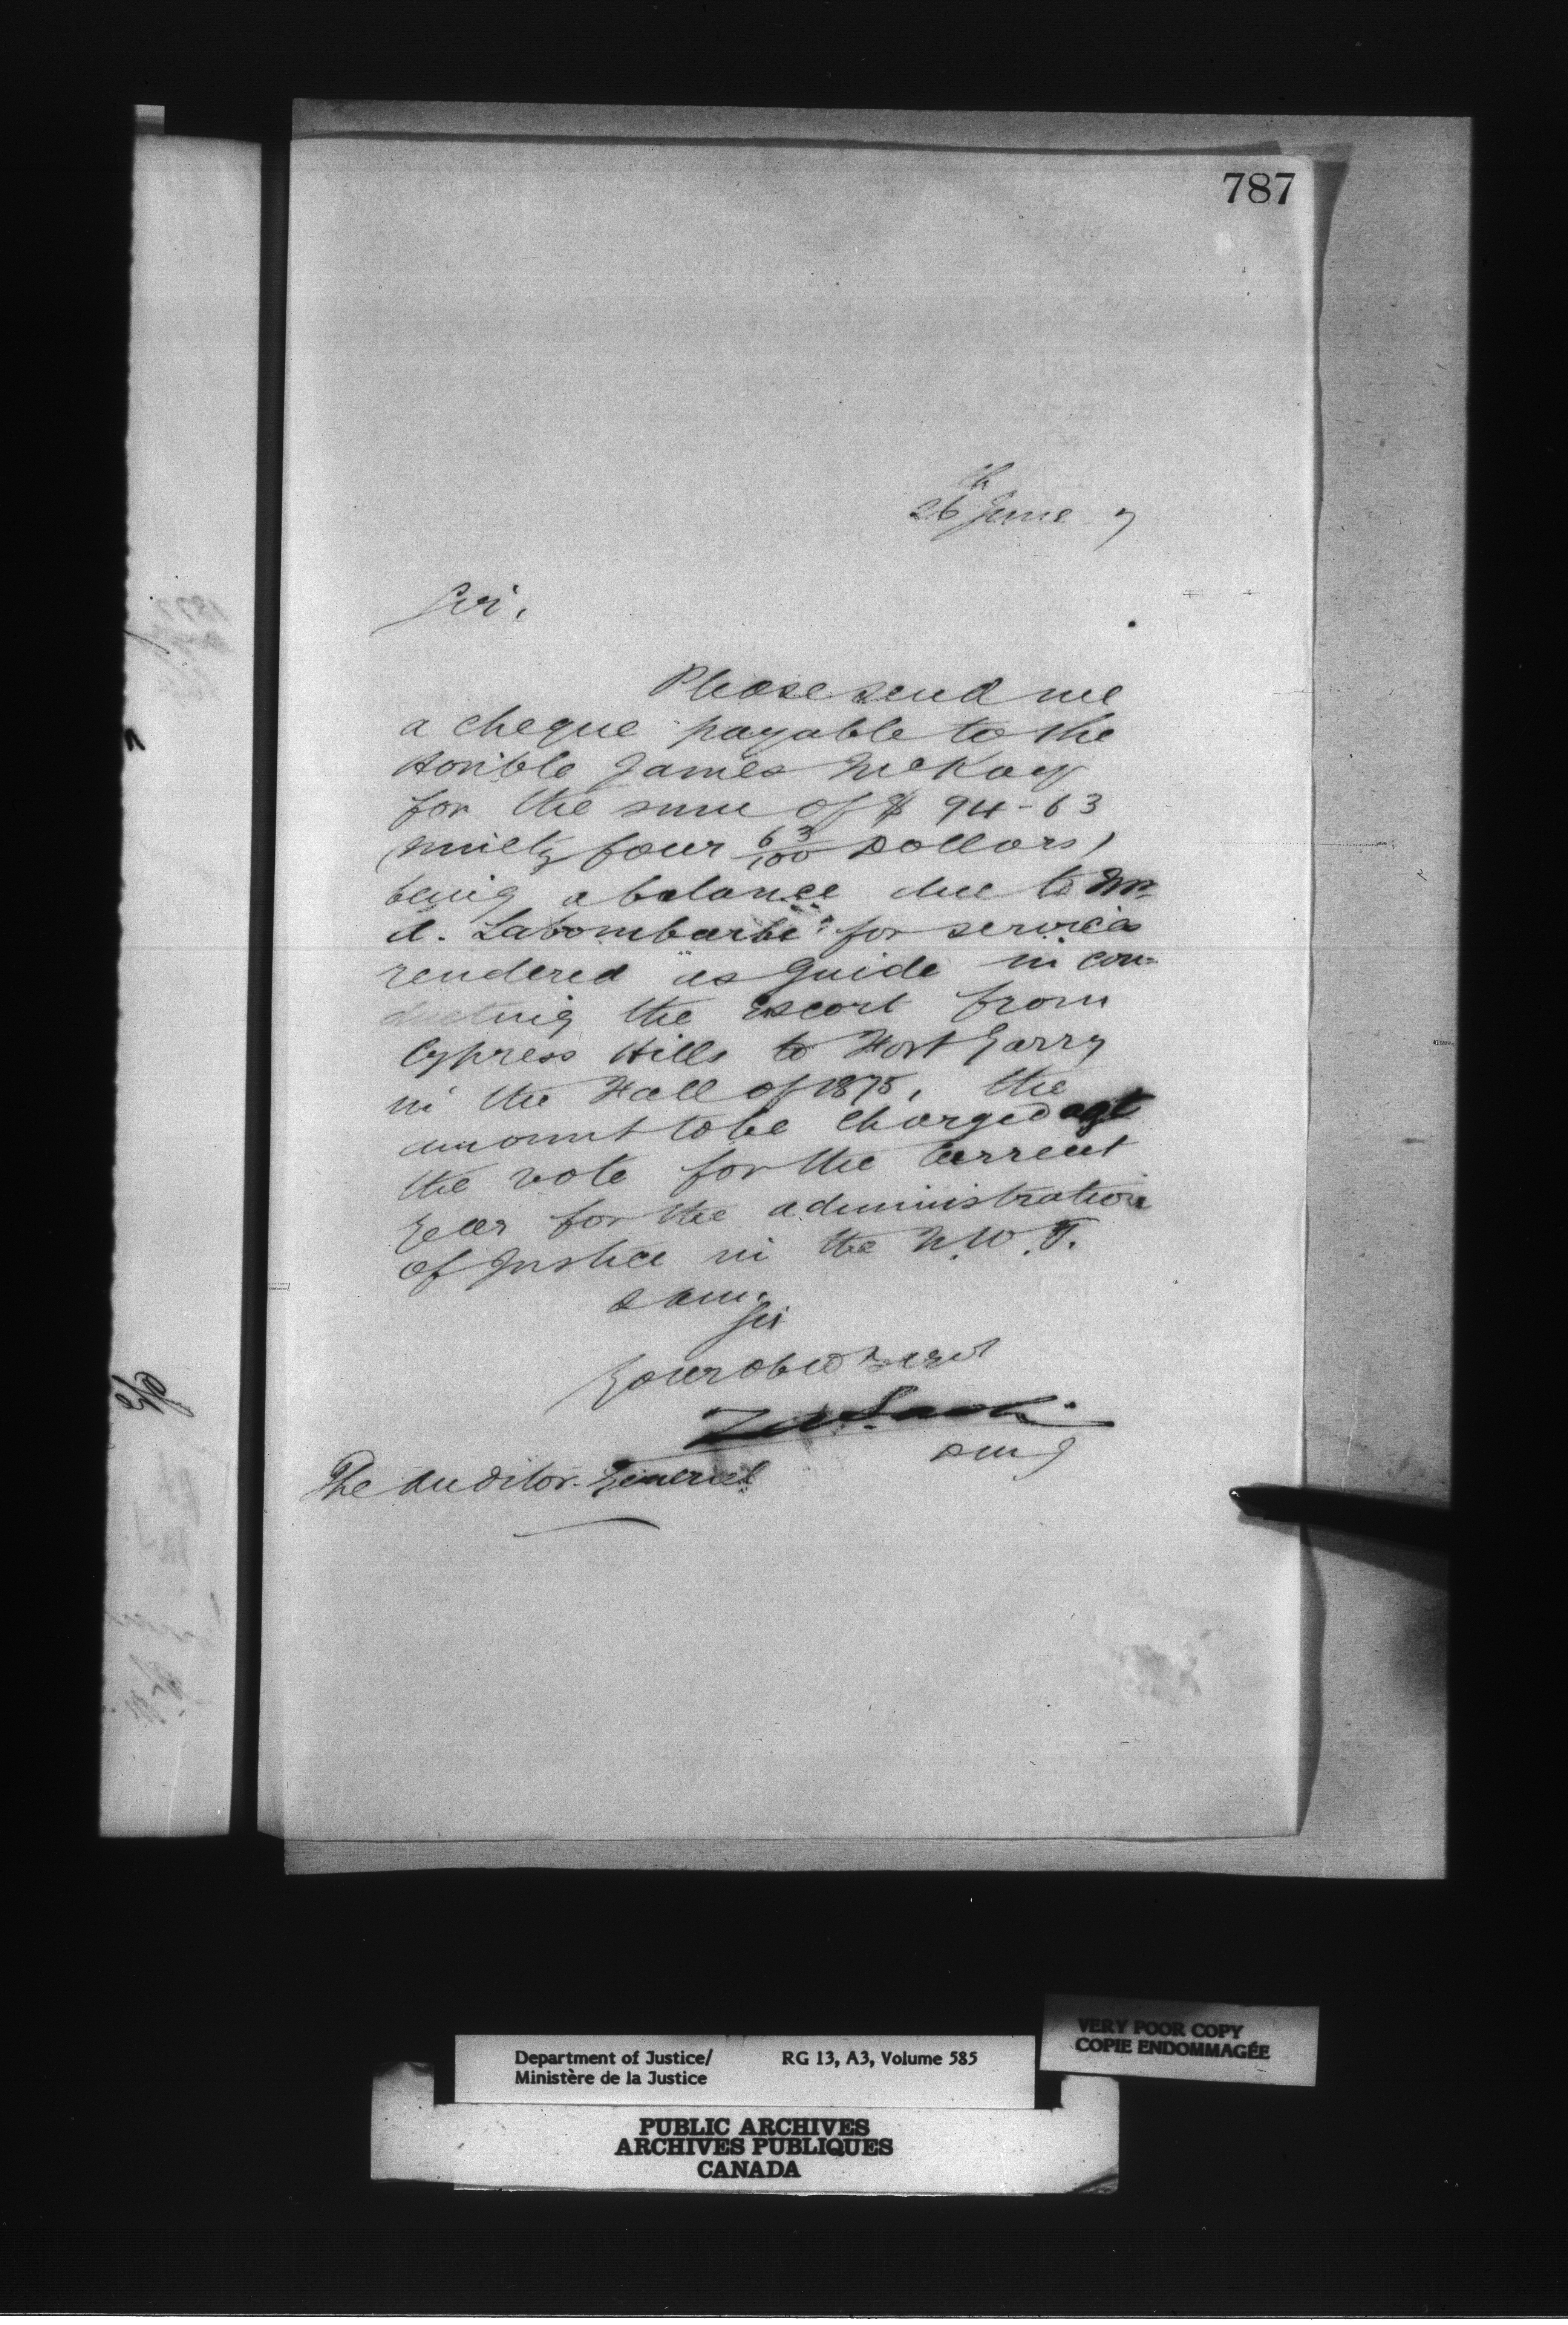 787
26th June 7
Sir,
Please send me
a cheque payable to the
Honble James McKay
for the sum of $ 94-63
(ninety four 63/100 Dollars)
being a balance due to Mr
A. Labombarbe for services
rendered as Guide in con-
ducting the escort from
Cypress Hills to Fort Garry
in the Fall of 1875, the
amount to be charged agt
the vote for the current
year for the administration
of Justice in the N.W.T.
I am,
Sir
Your obedt servt
D M J
The Auditor General
Department of Justice/ RG 13, A3, Volume 585
Ministère de la Justice
VERY POOR COPY
COPIE ENDOMMAGÉE
PUBLIC ARCHIVES
ARCHIVES PUBLIQUES
CANADA